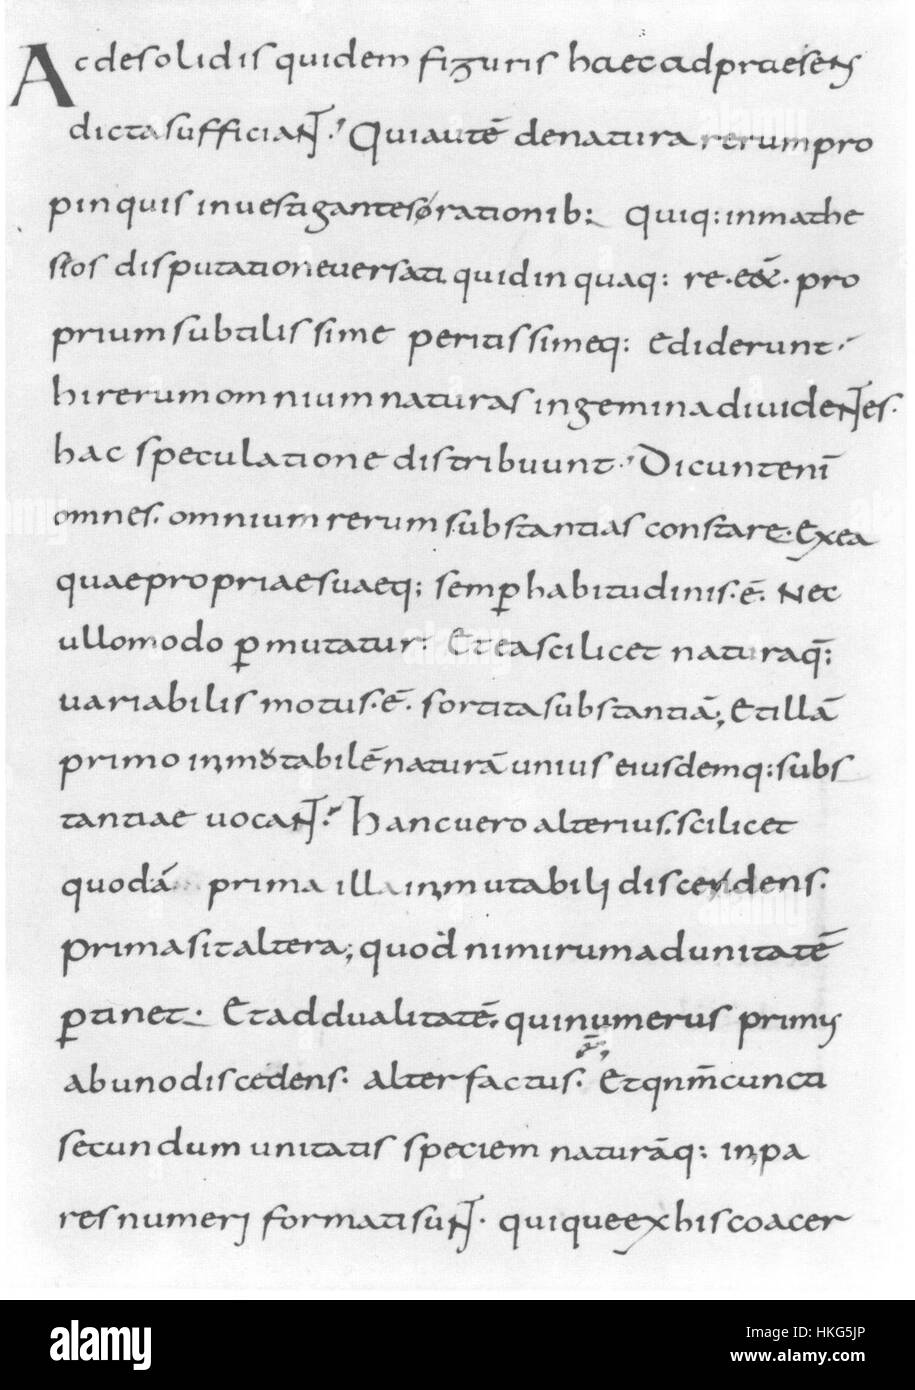 Ac de solidis quidem figuris haec ad praesens
dicta sufficiant. Qui autē de natura rerum pro
pinquis investigantes rationib: Quiq: in mathe
seos disputatione versati quid in quaq: re pro
prium subtilissime peritissimeq: ediderunt.
hi rerum omnium naturas in gemina dividentes.
hac speculatione distribuunt. Dicunt enī
omnes. omnium rerum substantias constare. Ex ea
quae propriae suaeq; semp habitudinis. ē. Nec
ullo modo pmutatur. Et ea scilicet naturaq̄;
variabilis motus. ē. sortita substantiā; Et illā
primo inmotabilē naturā unius eiusdemq: subs
tantiae vocant. Hanc vero alterius. scilicet
quodā prima illa inmutabili discedens.
prima sit altera; quod nimirum ad unitatē
ptinet. Et ad dualitatē. qui numerus primus
ab uno discedens. alter factus. Et qnm̄ cuncti
secundum unitatis speciem naturāq: inpa
res numeri formati sunt. quique ex his coacer
alamy
HKG5JP
www.alamy.com